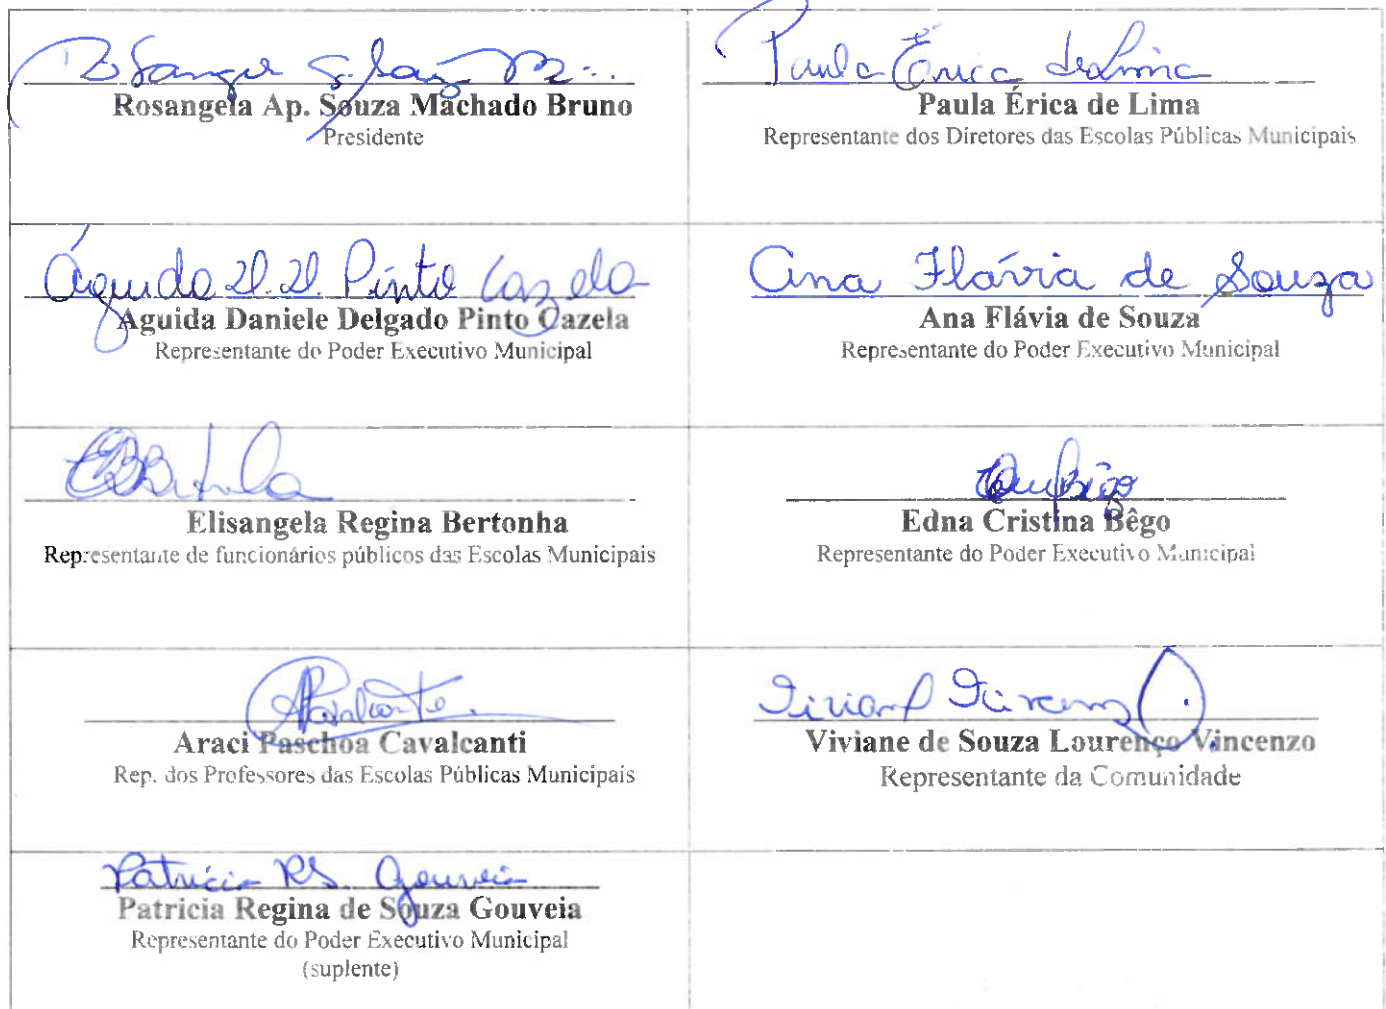 Rosangela Ap. Souza Machado Bruno
Presidente
Paula Érica de Lima
Paula Érica de Lima
Representante dos Diretores das Escolas Públicas Municipais
Aguida D. D. Pinto Cazela
Aguida Daniele Delgado Pinto Cazela
Representante do Poder Executivo Municipal
Ana Flávia de Souza
Ana Flávia de Souza
Representante do Poder Executivo Municipal
Elisangela Regina Bertonha
Representante de funcionários públicos das Escolas Municipais
Edna Cristina Bêgo
Representante do Poder Executivo Municipal
Araci Paschoa Cavalcanti
Rep. dos Professores das Escolas Públicas Municipais
Viviane de Souza Lourenço Vincenzo
Representante da Comunidade
Patricia RS. Gouveia
Patricia Regina de Souza Gouveia
Representante do Poder Executivo Municipal
(suplente)